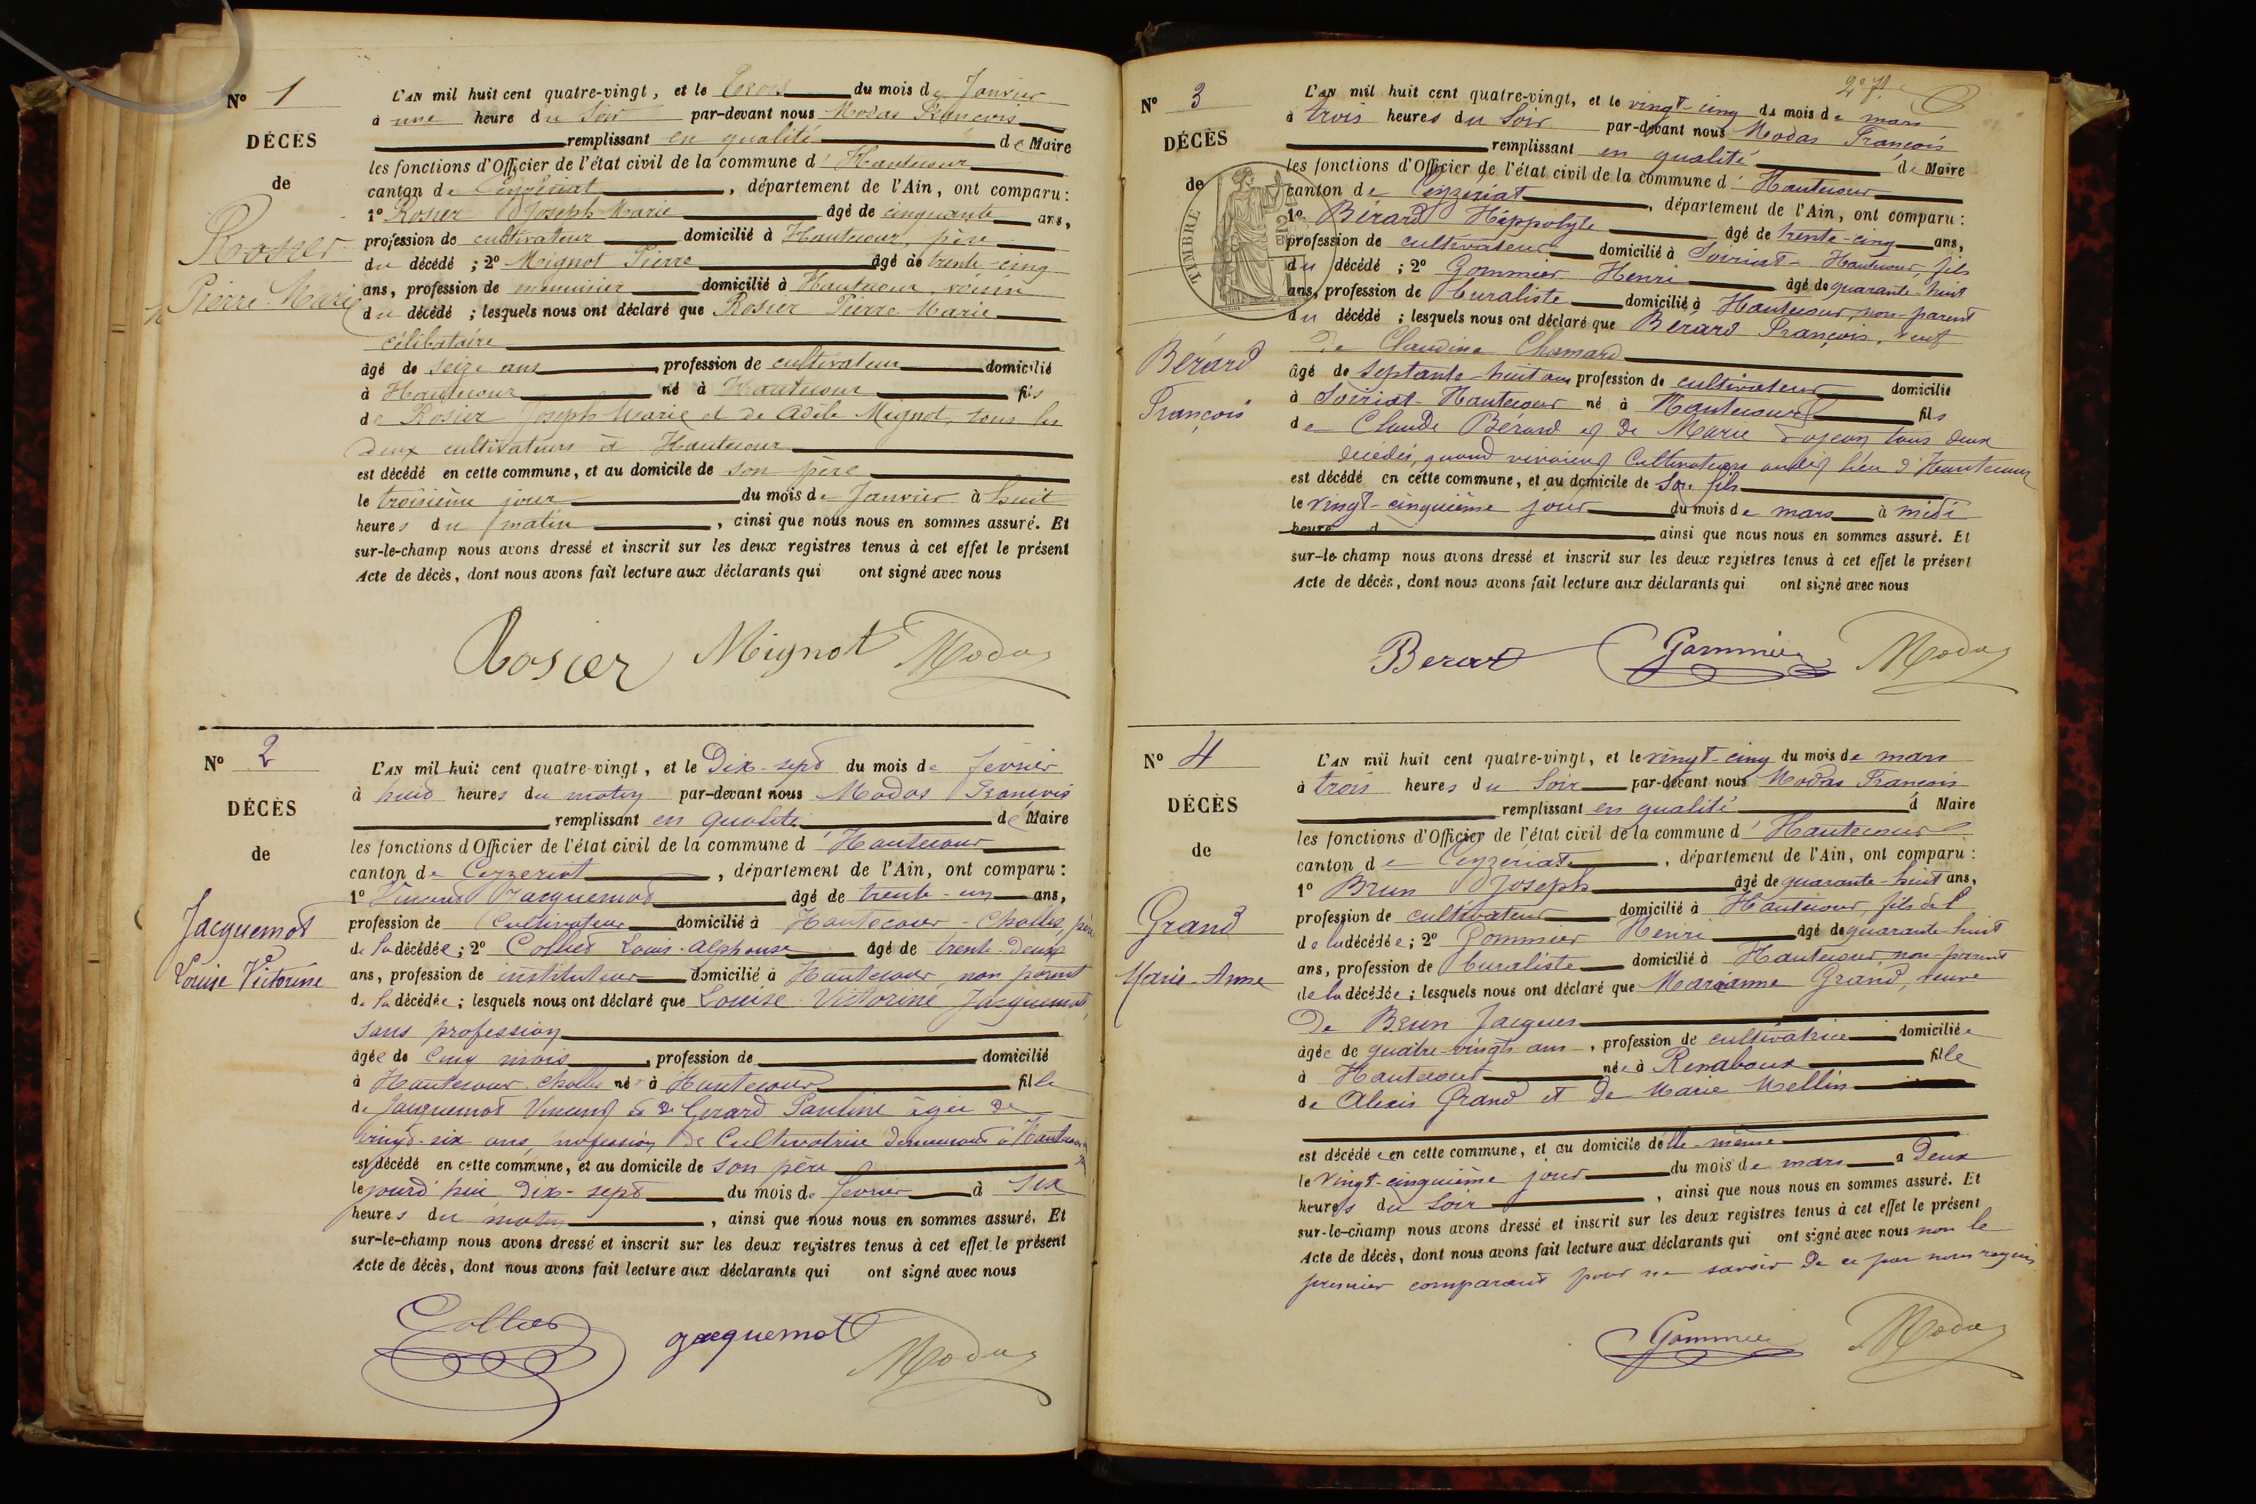 N° 1
DÉCÈS
de
Rosier
Pierre Marie
L'AN mil huit cent quatre-vingt, et le trois du mois de Janvier
à une heure du Soir par-devant nous Modas François
remplissant en qualité de Maire
les fonctions d'Officier de l'état civil de la commune d'Hautecour
canton de Ceyzériat, département de l'Ain, ont comparu :
1° Rosier Joseph Marie âgé de cinquante ans,
profession de cultivateur domicilié à Hautecour, père
du décédé ; 2° Mignot Pierre âgé de trente-cinq
ans, profession de menuisier domicilié à Hautecour, voisin
du décédé ; lesquels nous ont déclaré que Rosier Pierre Marie
célibataire
âgé de seize ans, profession de cultivateur domicilié
à Hautecour né à Hautecour fils
de Rosier Joseph Marie et de Adèle Mignot, tous les
deux cultivateurs à Hautecour
est décédé en cette commune, et au domicile de son père
le troisième jour du mois de Janvier à huit
heures du matin, ainsi que nous nous en sommes assuré. Et
sur-le-champ nous avons dressé et inscrit sur les deux registres tenus à cet effet le présent
Acte de décès, dont nous avons fait lecture aux déclarants qui ont signé avec nous
Rosier Mignot Modas
N° 2
DÉCÈS
de
Jacquemot
Louise Victorine
L'AN mil huit cent quatre-vingt, et le Dix-sept du mois de février
à huit heures du matin par-devant nous Modas François
remplissant en qualité de Maire
les fonctions d'Officier de l'état civil de la commune d'Hautecour
canton de Ceyzeriat, département de l'Ain, ont comparu :
1° Vincent Jacquemot âgé de trente-un ans,
profession de Cultivateur domicilié à Hautecour-Cholles, père
de la décédée ; 2° Collet Louis-Alphonse âgé de trente-deux
ans, profession de instituteur domicilié à Hautecour, non parent
de la décédée ; lesquels nous ont déclaré que Louise Victorine Jacquemot,
sans profession
âgée de Cinq mois, profession de domicilié
à Hautecour-Cholles née à Hautecour fille
de Jacquemot Vincent et de Gérard Pauline âgée de
vingt-six ans, profession de Cultivatrice demeurant à Hautecour
est décédé en cette commune, et au domicile de son père
le jourd'hui Dix-sept du mois de février à six
heures du matin, ainsi que nous nous en sommes assuré. Et
sur-le-champ nous avons dressé et inscrit sur les deux registres tenus à cet effet le présent
Acte de décès, dont nous avons fait lecture aux déclarants qui ont signé avec nous
Collet jacquemot Modas
2e f
N° 3
DÉCÈS
de
TIMBRE
Bérard
François
L'AN mil huit cent quatre-vingt, et le vingt-cinq du mois de mars
à trois heures du Soir par-devant nous Modas François
remplissant en qualité de Maire
les fonctions d'Officier de l'état civil de la commune d'Hautecour
canton de Ceyzériat, département de l'Ain, ont comparu :
1° Bérard Hippolyte âgé de trente-cinq ans,
profession de cultivateur domicilié à Soiriat-Hautecour, fils
du décédé ; 2° Gommier Henri âgé de quarante-huit
ans, profession de buraliste domicilié à Hautecour, non-parent
du décédé ; lesquels nous ont déclaré que Bérard François, veuf
de Claudine Chamard
âgé de septante-huit ans profession de cultivateur domicilié
à Soiriat-Hautecour né à Hautecour fils
de Claude Bérard et de Marie tous deux
décédés, quand vivaient Cultivateurs audit lieu d'Hautecour
est décédé en cette commune, et au domicile de son fils
le vingt-cinquième jour du mois de mars à midi
heure d ainsi que nous nous en sommes assuré. Et
sur-le-champ nous avons dressé et inscrit sur les deux registres tenus à cet effet le présent
Acte de décès, dont nous avons fait lecture aux déclarants qui ont signé avec nous
Berard Gommier Modas
N° 4
DÉCÈS
de
Grand
Marie-Anne
L'AN mil huit cent quatre-vingt, et le vingt-cinq du mois de mars
à trois heures du Soir par-devant nous Modas François
remplissant en qualité d Maire
les fonctions d'Officier de l'état civil de la commune d'Hautecour
canton de Ceyzériat, département de l'Ain, ont comparu :
1° Brun Joseph âgé de quarante-huit ans,
profession de cultivateur domicilié à Hautecour, fils de l
de la décédée ; 2° Gommier Henri âgé de quarante-huit
ans, profession de buraliste domicilié à Hautecour, non-parent
de la décédée ; lesquels nous ont déclaré que Marianne Grand, veuve
de Brun Jacques
âgée de quatre-vingts ans, profession de cultivatrice domiciliée
à Hautecour née à Renaboux fille
de Alexis Grand et de Marie Mellin
est décédée en cette commune, et au domicile d'elle-même
le vingt-cinquième jour du mois de mars à Deux
heures du Soir, ainsi que nous nous en sommes assuré. Et
sur-le-champ nous avons dressé et inscrit sur les deux registres tenus à cet effet le présent
Acte de décès, dont nous avons fait lecture aux déclarants qui ont signé avec nous non le
premier comparant pour ne savoir de ce par nous requis
Gommier Modas